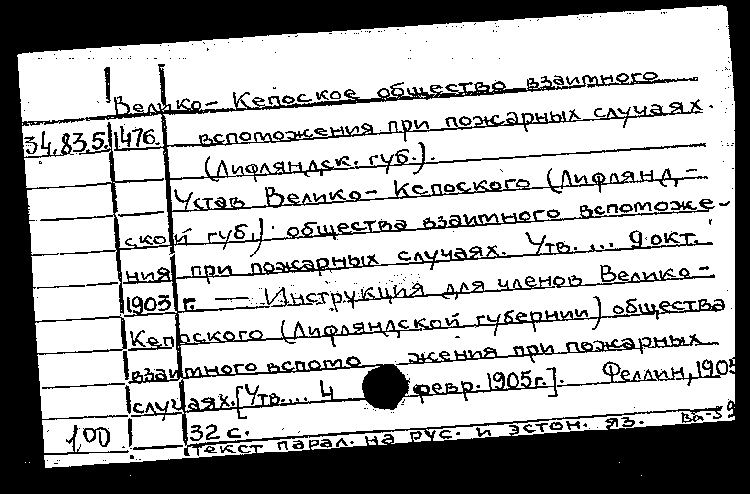 Велико-Кепоское общество взаимного
34.83.5.1476. вспоможения при пожарных случаях.
(Лифляндск. губ.).
Устав Велико-Кепоского (Лифлянд-
ской губ.) общества взаимного вспоможе-
ния при пожарных случаях. Утв. ... 9 окт.
1903 г. — Инструкция для членов Велико-
Кепоского (Лифляндской губернии) общества
взаимного вспомо жения при пожарных
случаях. [Утв.... 4 февр. 1905г.]. Феллин, 1905
1,00 32 с.
Текст парал. на рус. и эстон. яз.